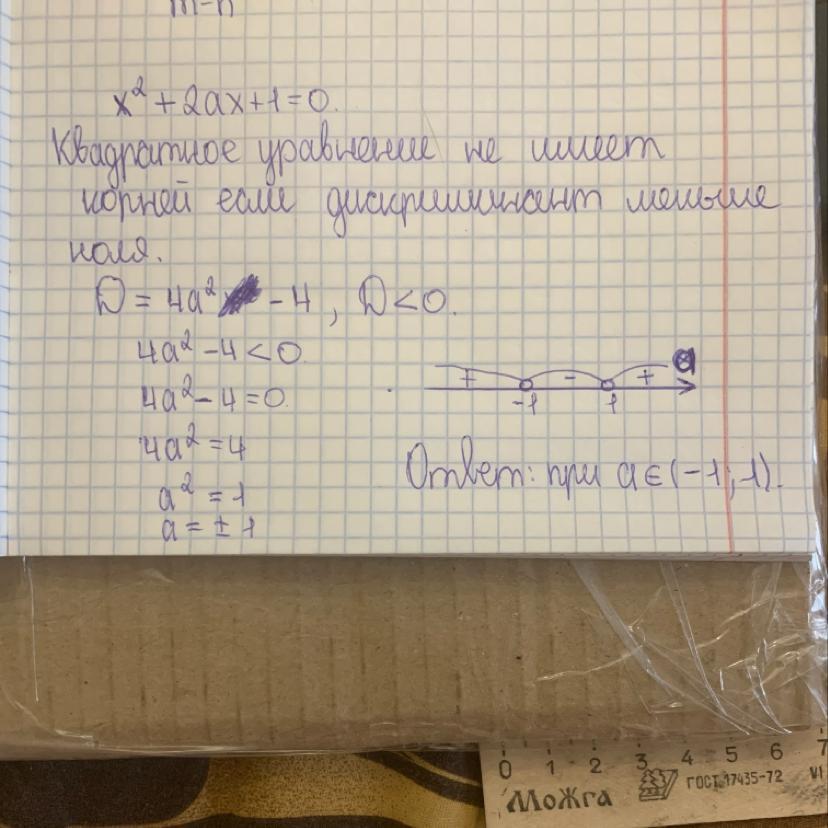 m-n
x² + 2ax + 1 = 0.
Квадратное уравнение не имеет
корней если дискриминант меньше
ноля.
D = 4a² - 4, D < 0.
4a² - 4 < 0.
4a² - 4 = 0.
4a² = 4
a² = 1
a = ± 1
+ - + a
-1 1
Ответ: при a ∈ (-1; 1).
0 1 2 3 4 5 6 7
МоЖга ГОСТ 17435-72 VI